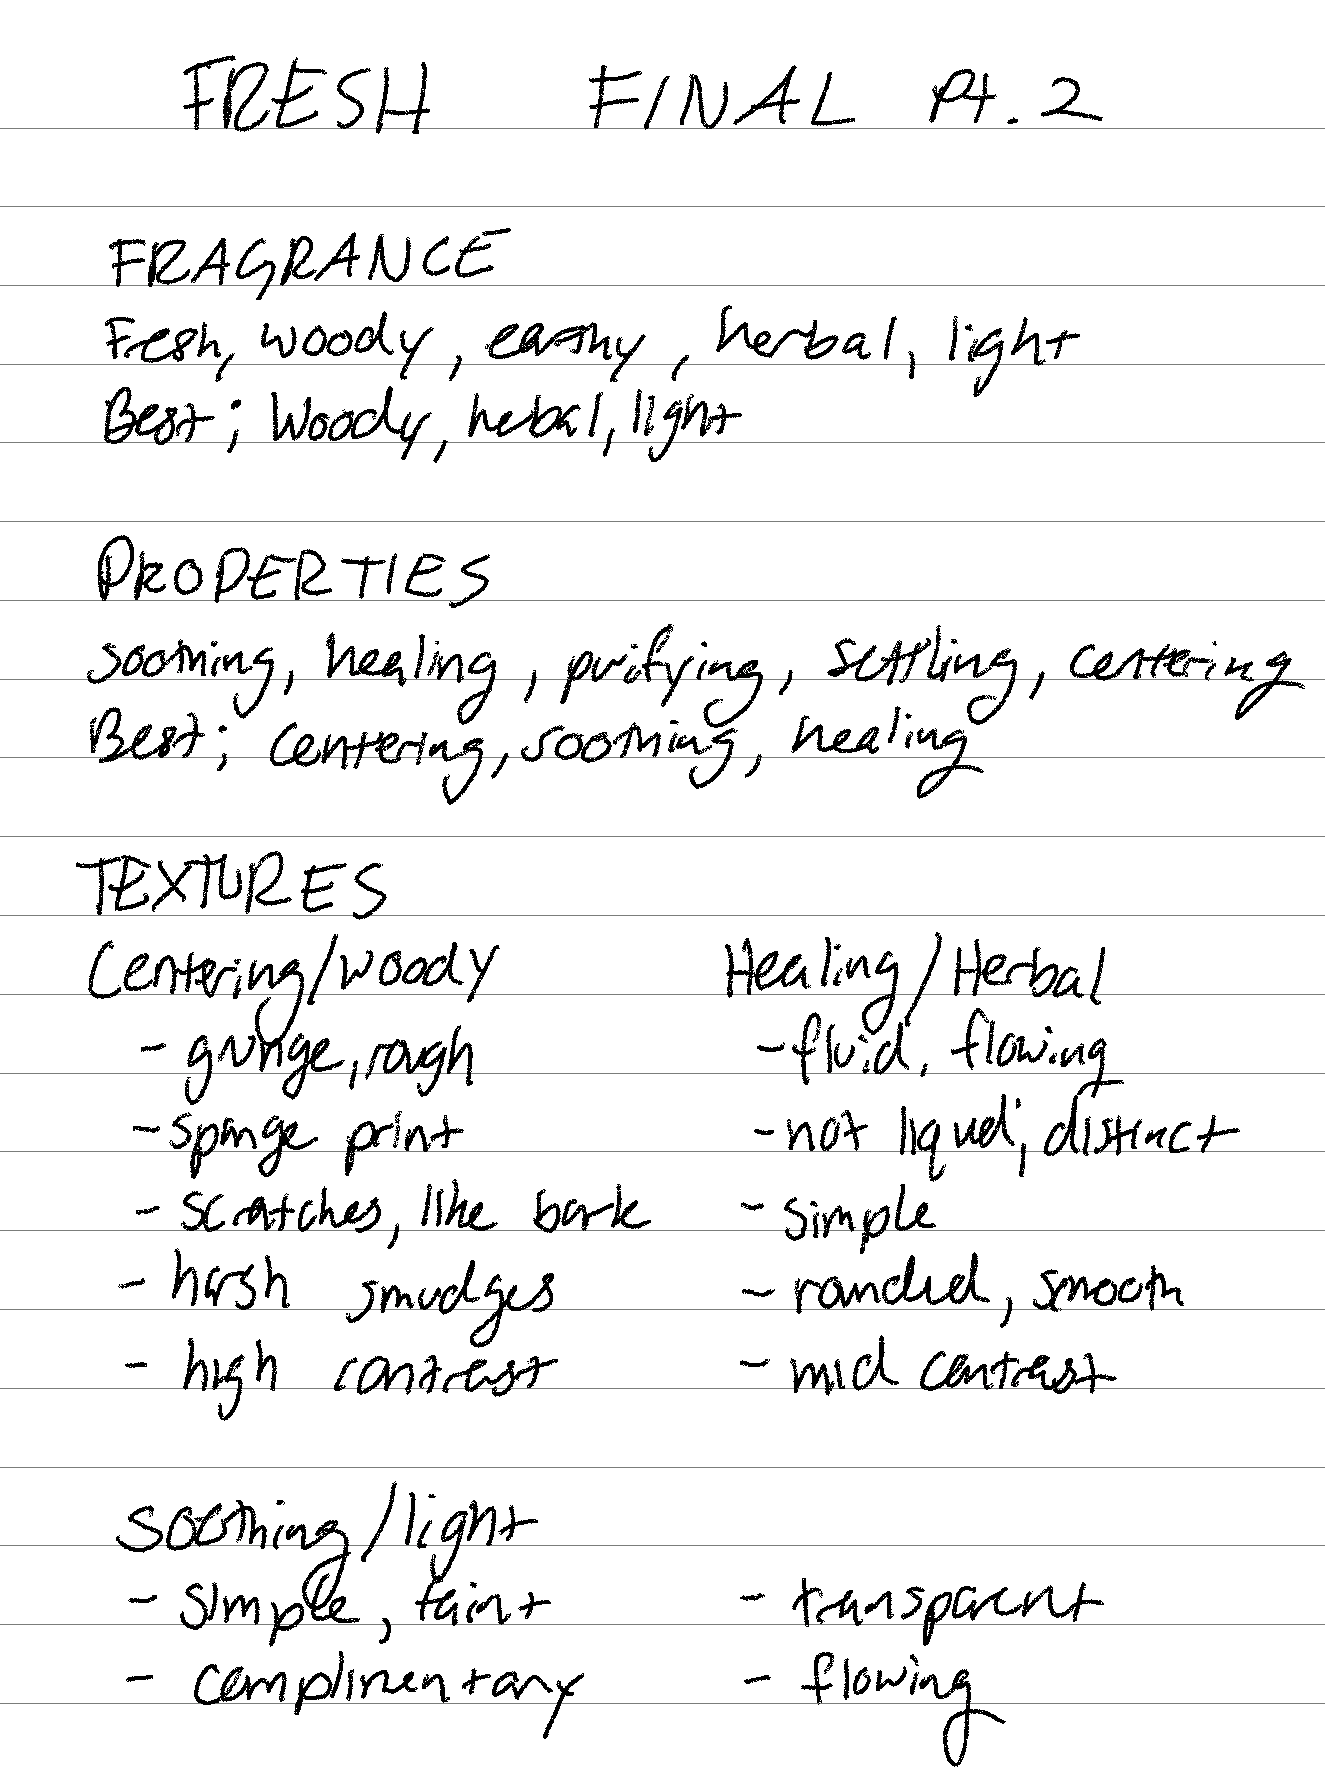 FRESH FINAL Pt. 2
FRAGRANCE
Fresh, woody, earthy, herbal, light
Best; Woody, hebal, light
PROPERTIES
soothing, healing, purifying, settling, centering
Best; centering, soothing, healing
TEXTURES
Centering/woody
- grunge, rough
- sponge print
- scratches, like bark
- harsh smudges
- high contrast
Healing/Herbal
- fluid, flowing
- not liqued, distinct
- simple
- rounded, smooth
- mid contrast
Soothing/light
- simple, faint
- complimentary
- transparent
- flowing